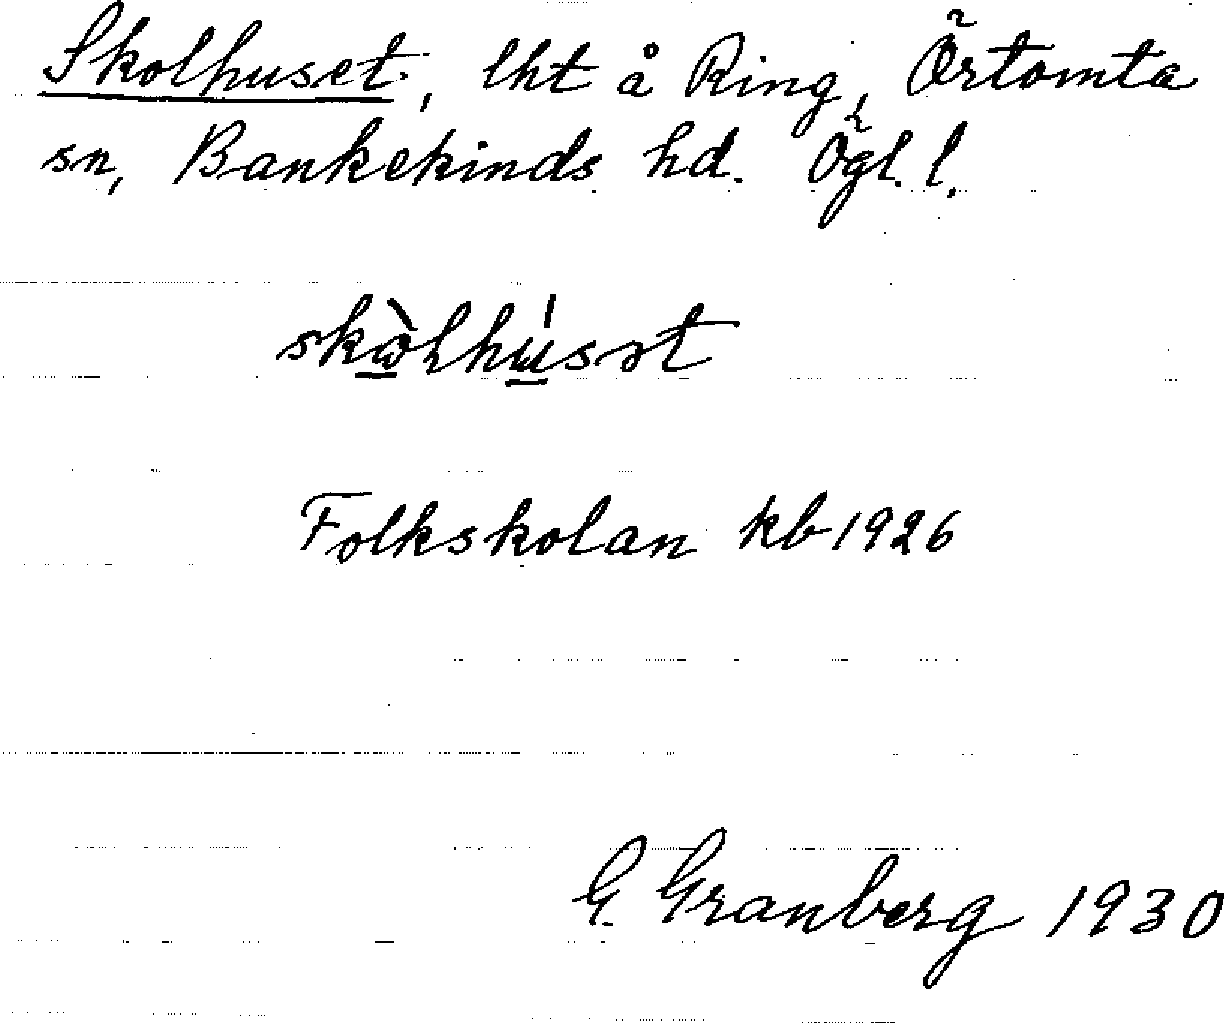 Skolhuset, lht å Ring, Örtomta
sn, Bankekinds hd. Ögl. l.
skὼlhu̍sət
Folkskolan kb 1926
G. Granberg 1930